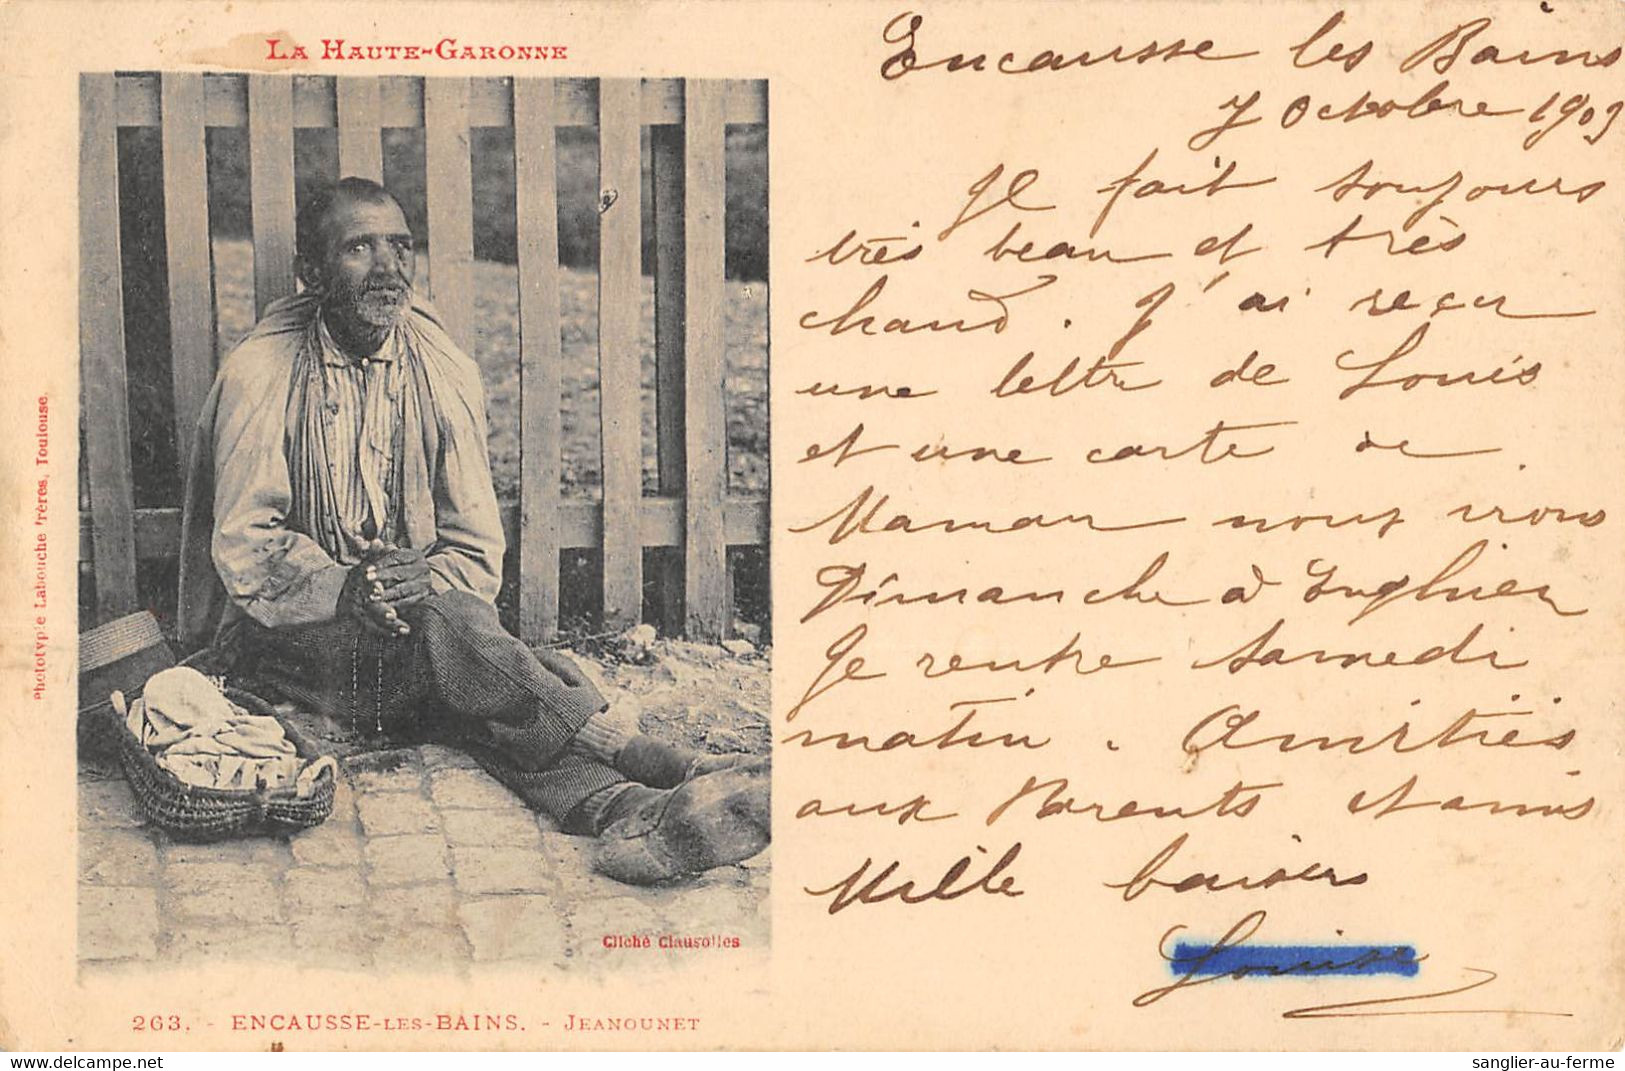 LA HAUTE-GARONNE
Phototypie Labouche frères, Toulouse.
Cliché Clausolles
263. - ENCAUSSE-LES-BAINS. - JEANOUNET
Encausse les Bains
7 Octobre 1903
Il fait toujours
très beau et très
chaud. J'ai reçu
une lettre de Louis
et une carte de
Maman nous irons
Dimanche à Enghien
Je rentre Samedi
matin. Amitiés
aux Parents et amis
Mille baisers
Louise
sanglier-au-ferme